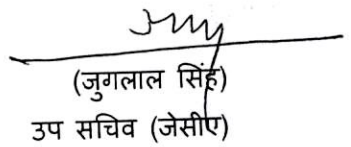 (जुगलाल सिंह)
उप सचिव (जेसीए)